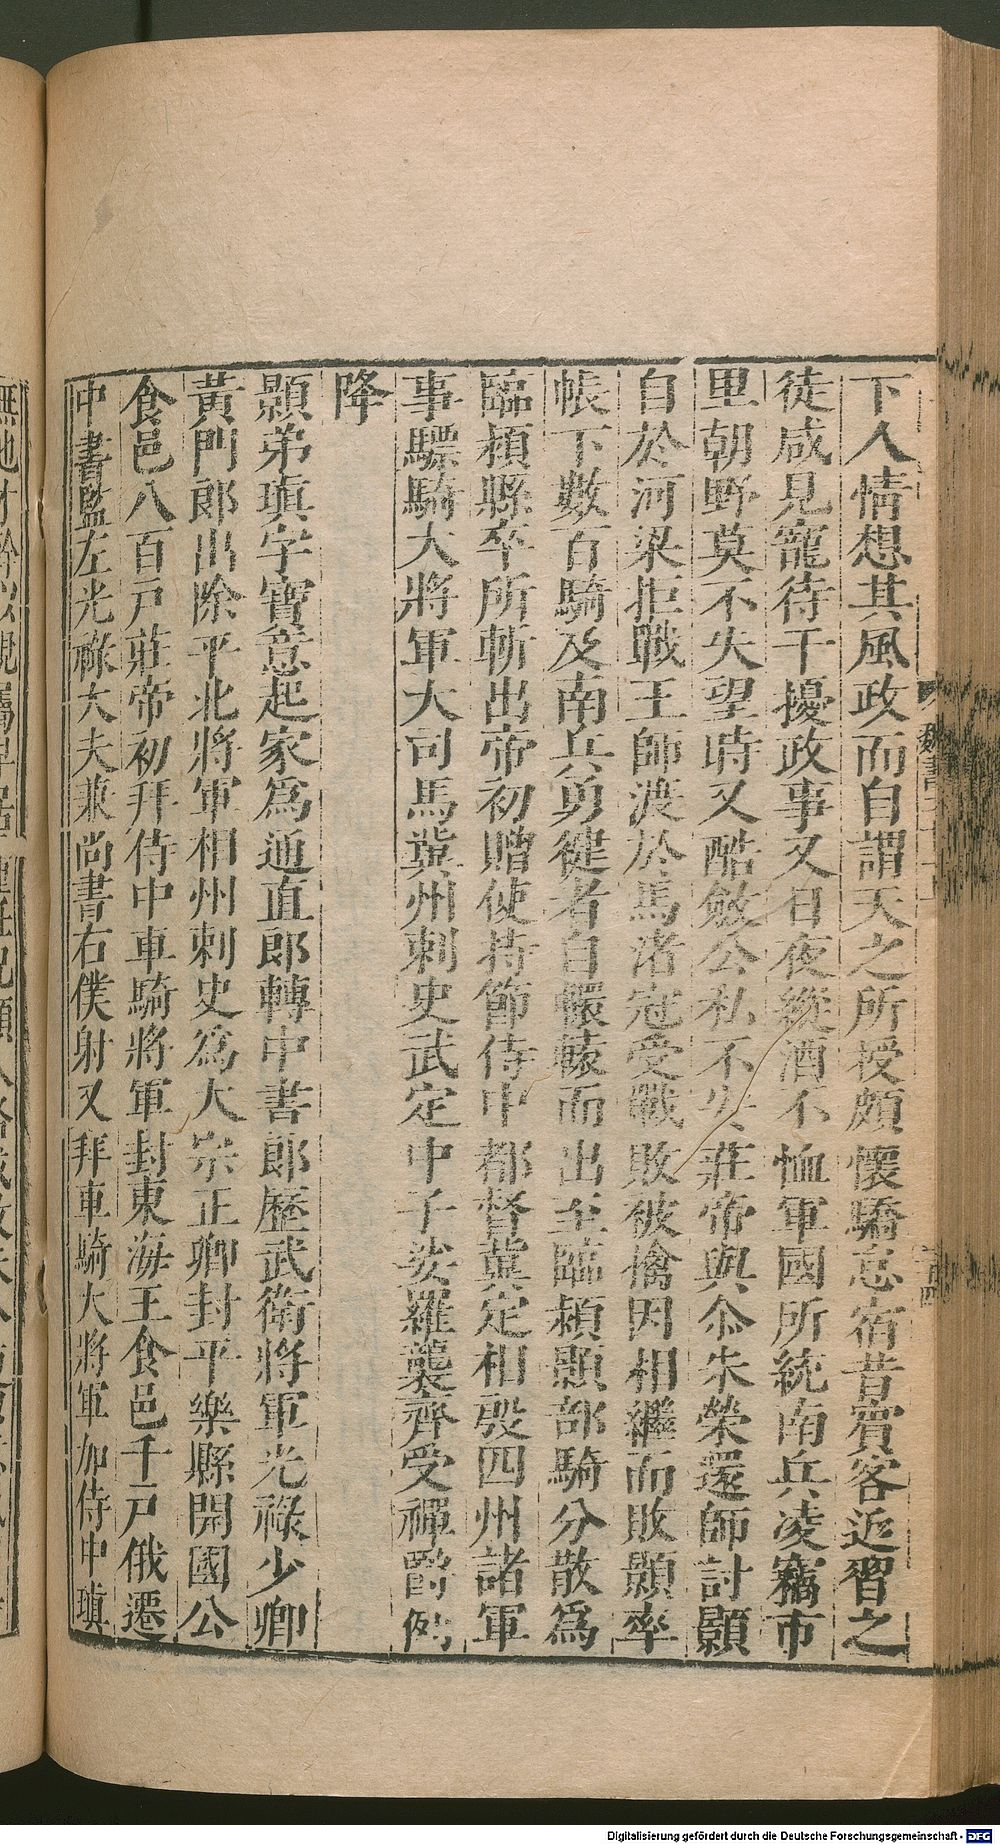 下人情想其風政而自謂天之所授頗懷驕怠宿昔賓客近習之
徒咸見寵待干擾政事又日夜縱酒不恤軍國所統南兵凌竊市
里朝野莫不失望時又酷斂公私不安莊帝與尒朱榮還師討顥
自於河梁拒戰王師渡於馬渚冠受戰敗被擒因相繼而敗顥率
帳下數百騎及南兵勇健者自轘轅而出至臨潁顥部騎分散為
臨潁縣卒所斬出帝初贈使持節侍中都督冀定相殷四州諸軍
事驃騎大將軍大司馬冀州刺史武定中子娑羅襲齊受禪爵例
降
顥弟瑱字寶意起家為通直郎轉中書郎歷武衛將軍光祿少卿
黃門郎出除平北將軍相州刺史為大宗正卿封平樂縣開國公
食邑八百戶莊帝初拜侍中車騎將軍封東海王食邑千戶俄遷
中書監左光祿大夫兼尚書右僕射又拜車騎大將軍加侍中瑱
Digitalisierung gefördert durch die Deutsche Forschungsgemeinschaft - DFG